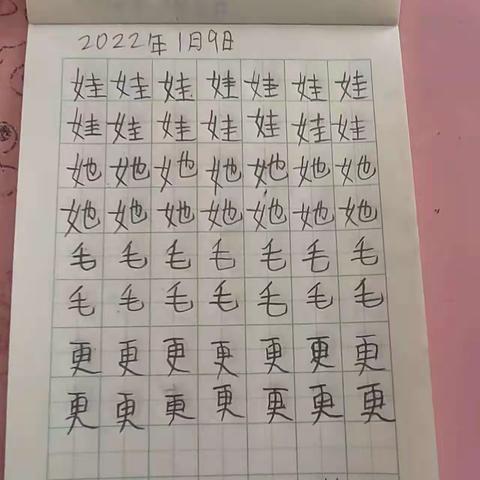 2022年1月9日
娃娃娃娃娃娃娃
娃娃娃娃娃娃娃
她她她她她她她
她她她她她她她
毛毛毛毛毛毛毛
毛毛毛毛毛毛毛
更更更更更更更
更更更更更更更